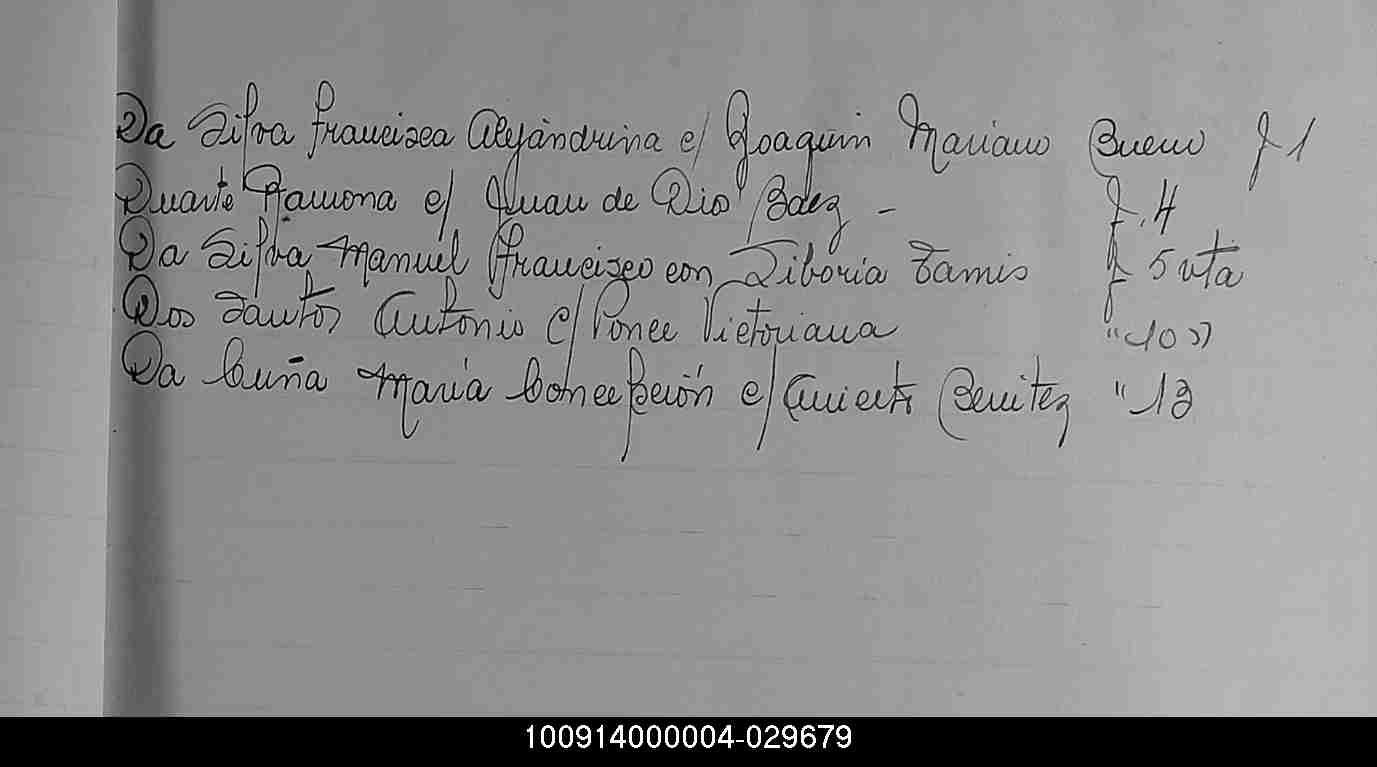 Da Silva Francisca Alejandrina c/ Joaquin Mariano Bueno f 1
Duarte Ramona c/ Juan de Dio Baez - f. 4
Da Silva Manuel Francisco con Liboria Tamis f 5 vta
Dos Santos Antonio c/ Ponce Victoriana " 10 "
Da Cuña María Concepción c/ Benitez " 13
100914000004-029679